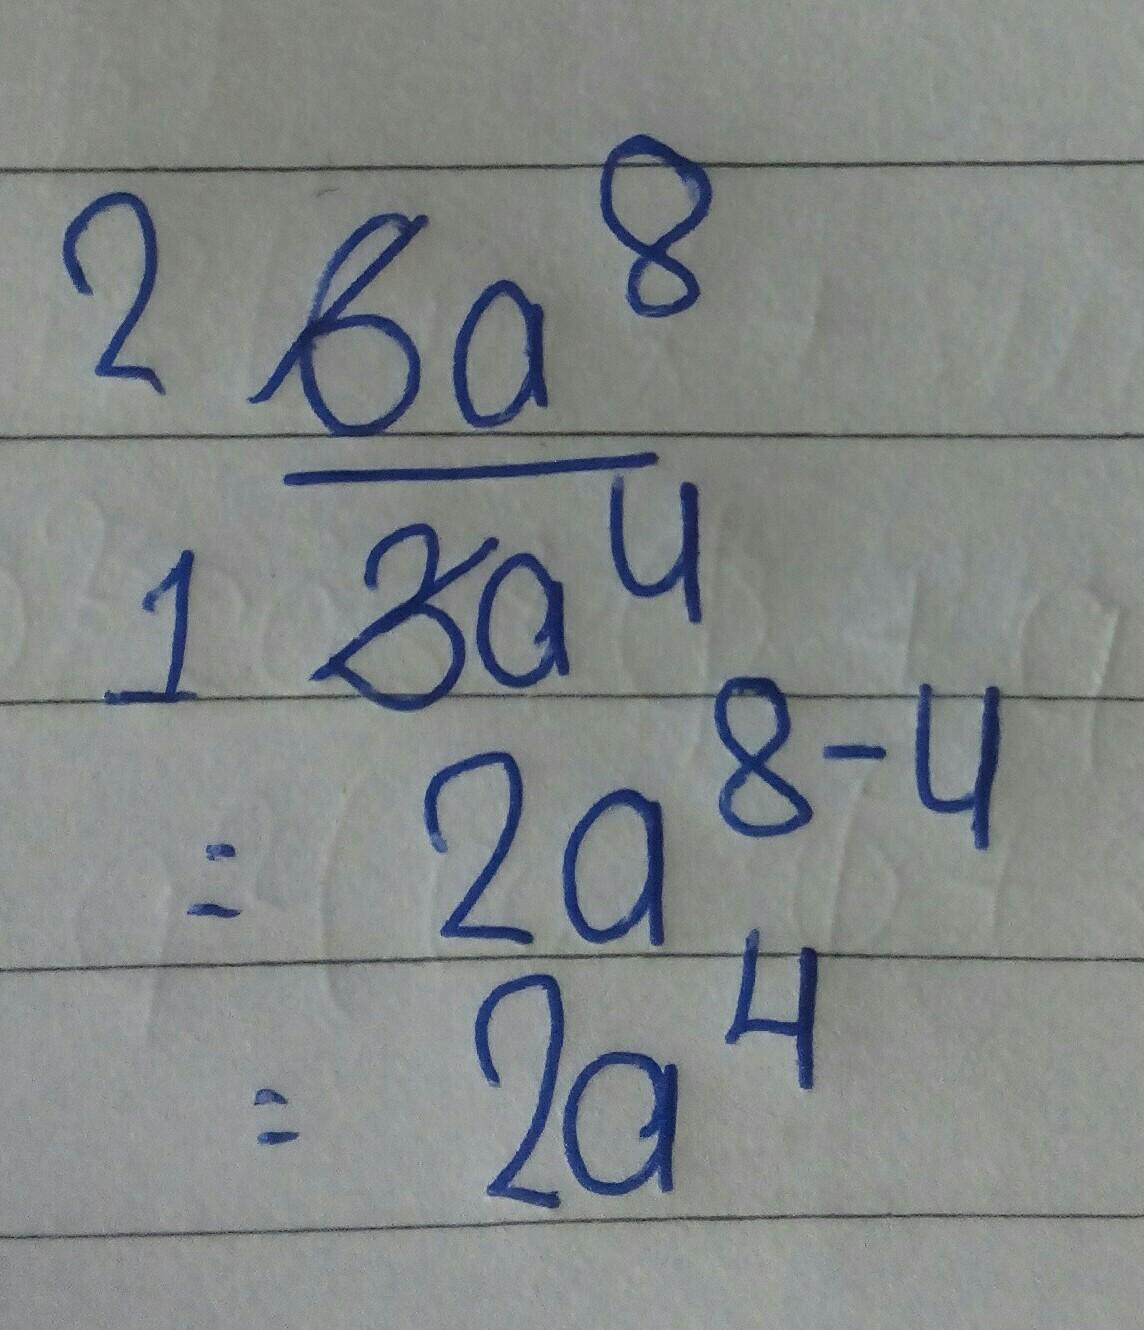 2 6a⁸
1 3a⁴
= 2a⁸⁻⁴
= 2a⁴